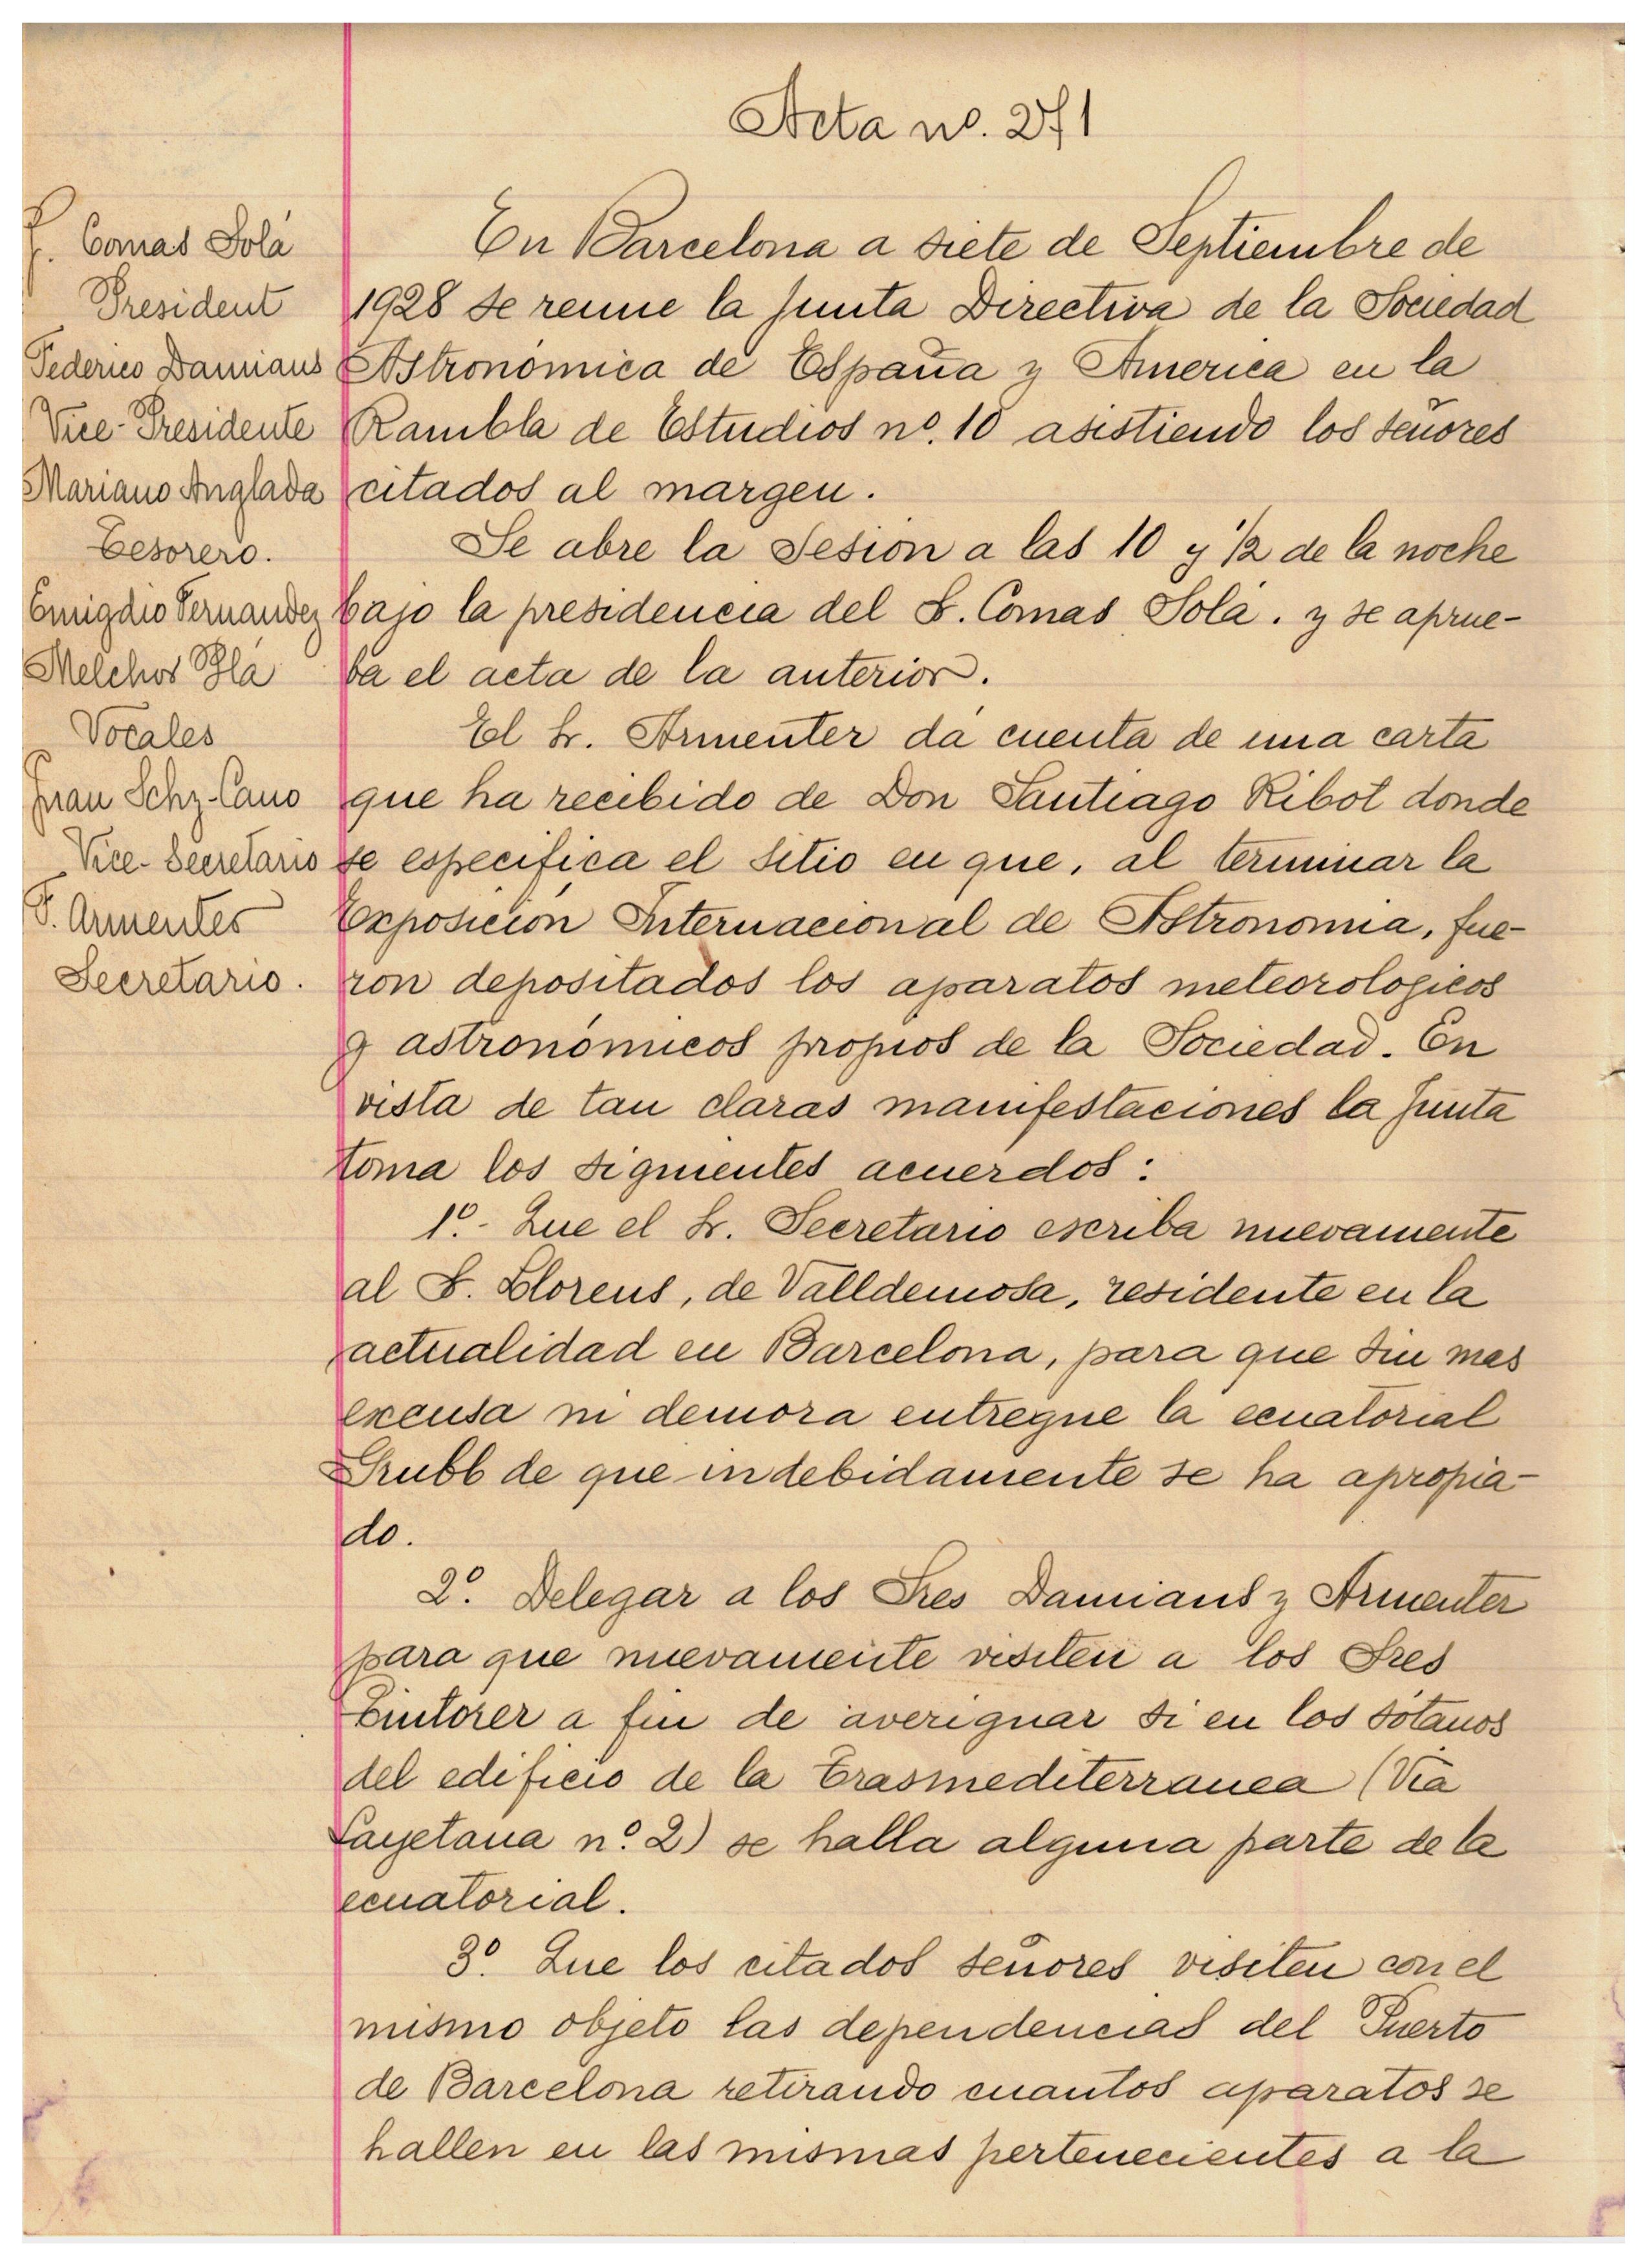 Acta nº. 271
J. Comas Solá
President
Federico Damians
Vice-Presidente
Mariano Anglada
Tesorero.
Emigdio Fernandez
Melchor Plá
Vocales
Juan Schz-Cano
Vice-Secretario
F. Armenter
Secretario.
En Barcelona a siete de Septiembre de
1928 se reune la Junta Directiva de la Sociedad
Astronómica de España y America en la
Rambla de Estudios nº. 10 asistiendo los señores
citados al margen.
Se abre la Sesion a las 10 y 1/2 de la noche
bajo la presidencia del S. Comas Solá. y se aprue-
ba el acta de la anterior.
El Sr. Armenter dá cuenta de una carta
que ha recibido de Don Santiago Ribot donde
se especifica el sitio en que, al terminar la
Exposición Internacional de Astronomia, fue-
ron depositados los aparatos meteorologicos
y astronómicos propios de la Sociedad. En
vista de tan claras manifestaciones la Junta
toma los siguientes acuerdos:
1º.- Que el Sr. Secretario escriba nuevamente
al S. Llorens, de Valldemosa, residente en la
actualidad en Barcelona, para que sin mas
excusa ni demora entregue la ecuatorial
Grubb de que indebidamente se ha apropia-
do.
2º. Delegar a los Sres Damians y Armenter
para que nuevamente visiten a los Sres
Tintorer a fin de averiguar si en los sótanos
del edificio de la Trasmediterranea (Via
Layetana nº. 2) se halla alguna parte de la
ecuatorial.
3º. Que los citados señores visiten con el
mismo objeto las dependencias del Puerto
de Barcelona retirando cuantos aparatos se
hallen en las mismas pertenecientes a la